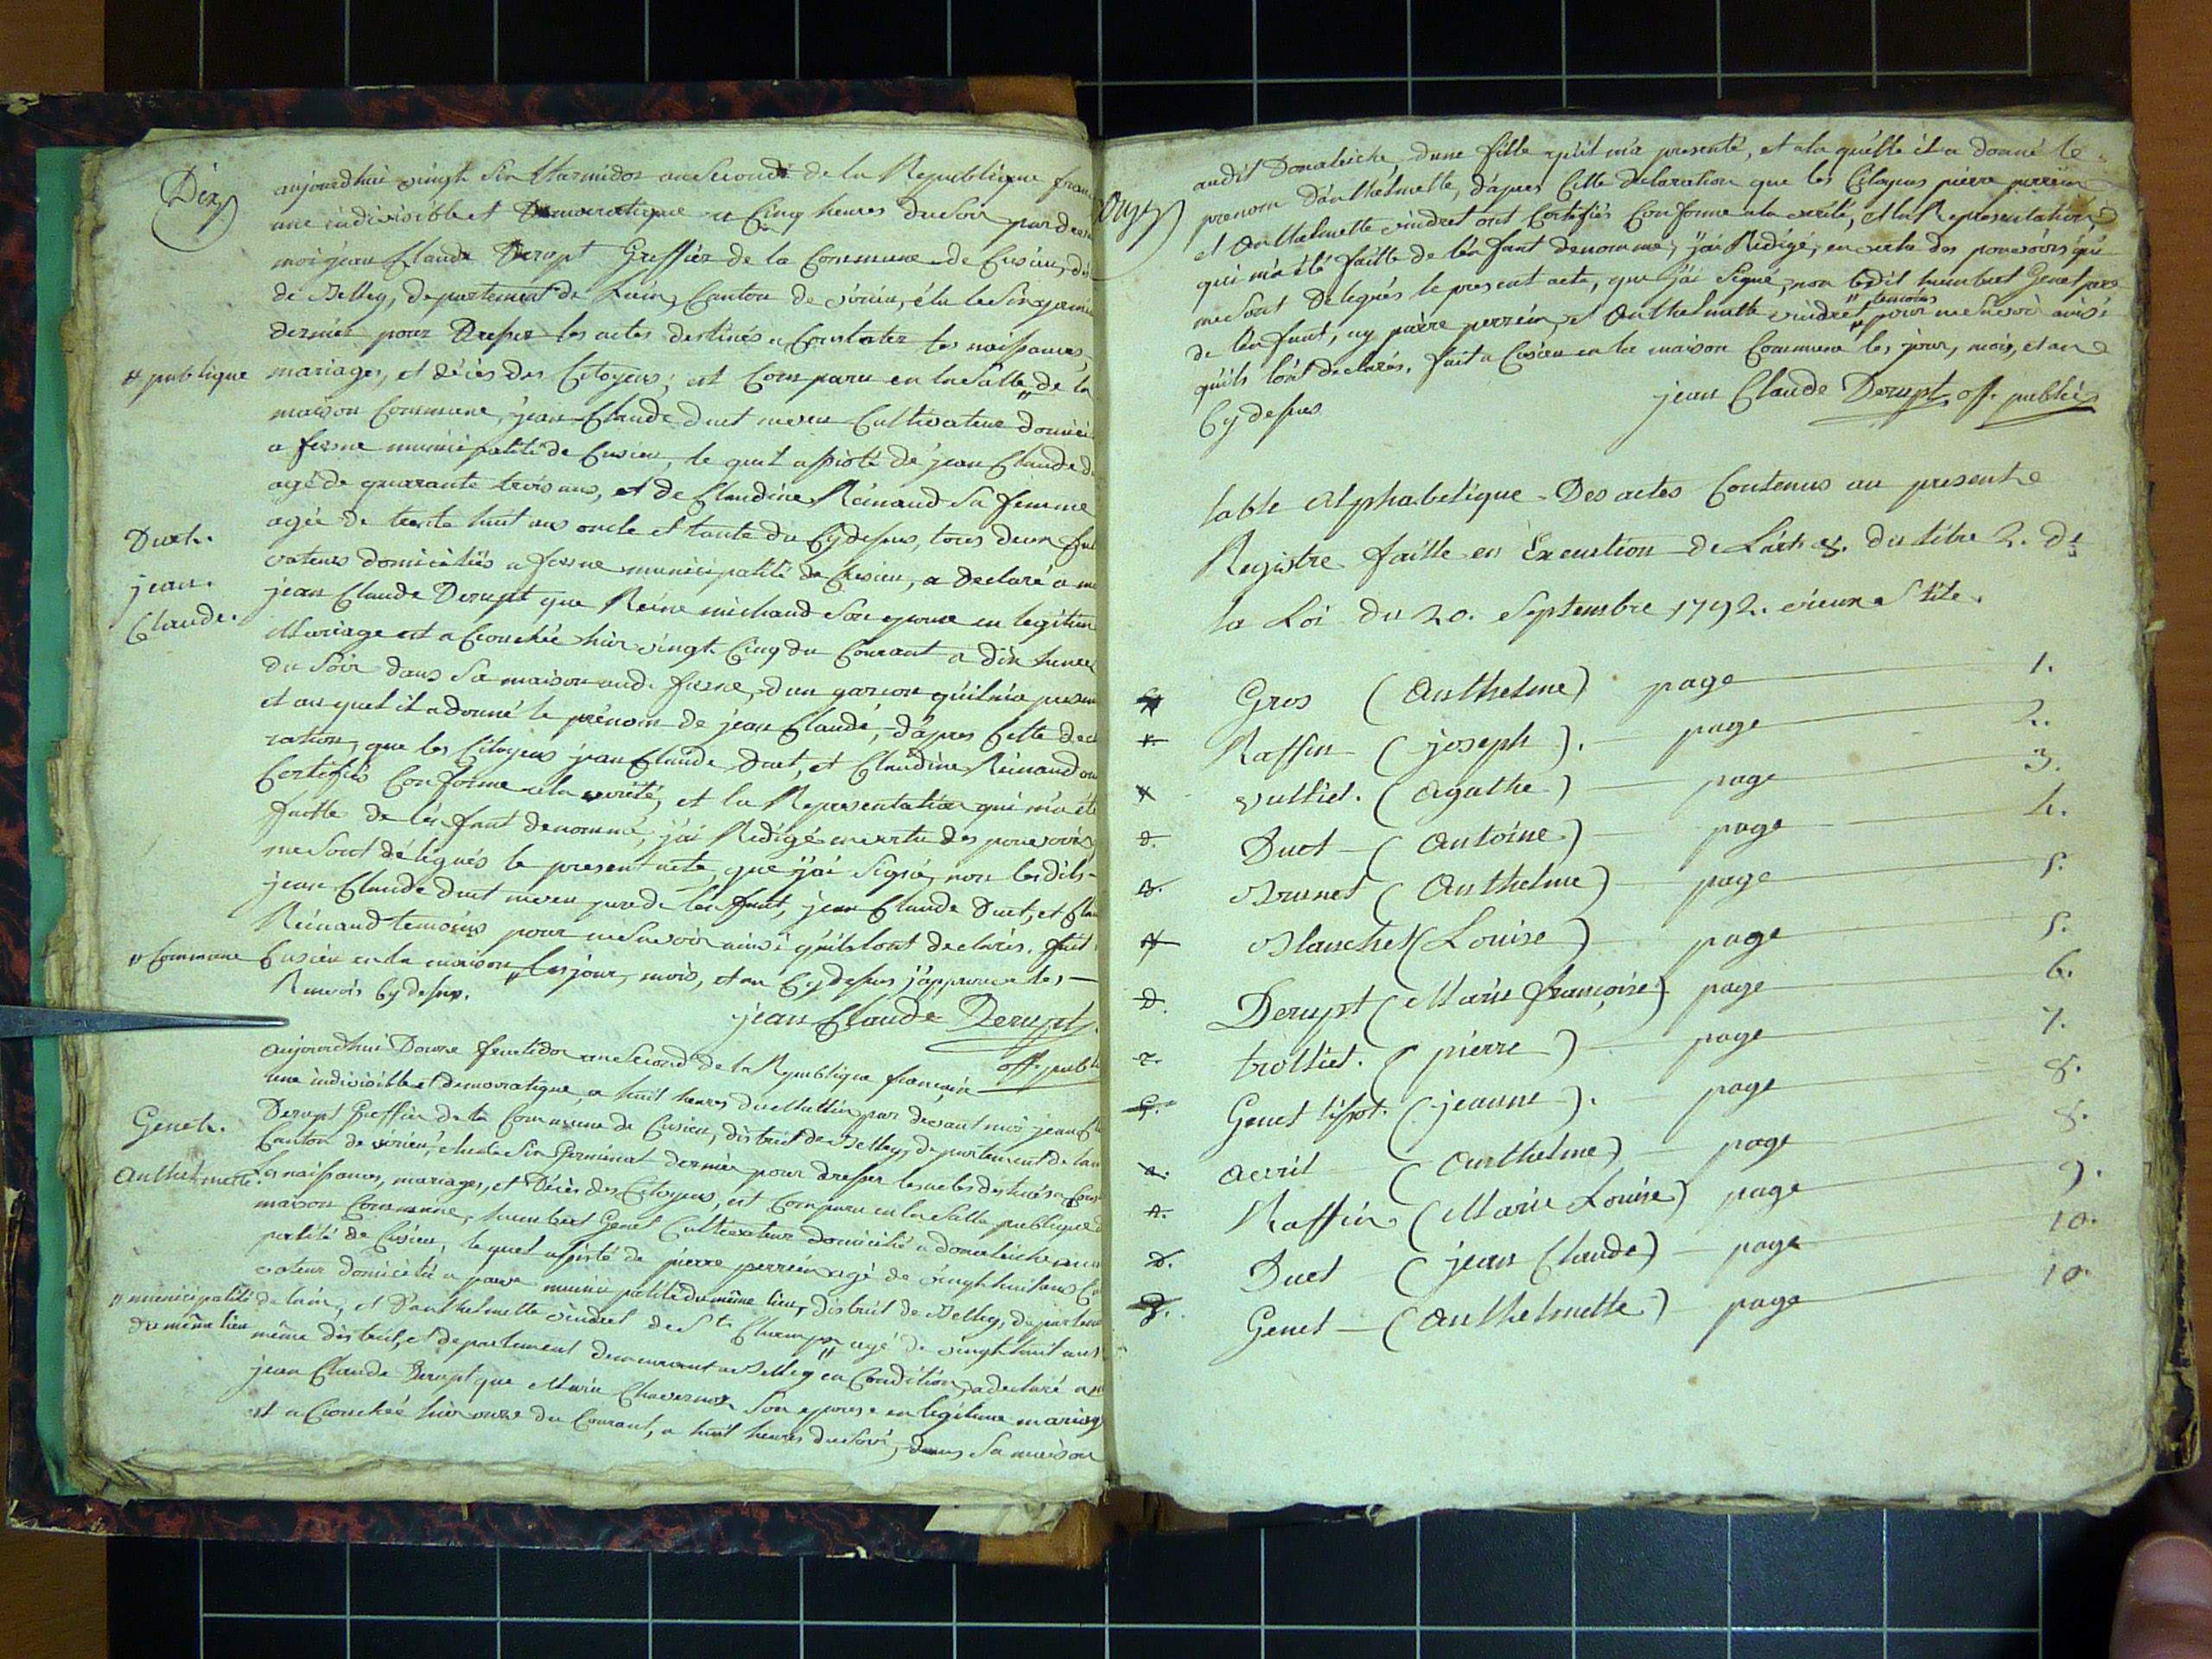 Dix
aujourdhui vingt six thermidor an second de la Republique fran
une indivisible et Democratique a Cinq heures du soir par devan
moi jean Claude Derupt Greffier de la Commune de Cusieu, di
de Belley, departement de Lain, Canton de virieu, élu le six
dernier pour Dresser les actes destinés a Constater les naissances,
" publique
mariages, et décès des Citoyens; est Comparu en la Salle " de la
maison Commune, jean Claude duet neveu Cultivateur domici
a fesne municipalité de Cusieu, le quel assisté de jean Claude d
agé de quarante trois ans, et de Claudine Reinaud Sa femme
agée de trente huit ans oncle et tante du Cydessus, tous deux Cul
Duet.
jean.
Claude.
vateurs domiciliés a fesne municipalité de Cusieu, a declaré a m
jean Claude Derupt que Reine michaud Son epouse en legitime
Mariage est accouchée hier vingt Cinq du Courant a dix heures
du Soir dans Sa maison aud. fesne, dun garcon quil m'a presen
et au quel il a donné le prénom de jean Claude, d'apres Cette decl
ration, que les Citoyens jean Claude duet, et Claudine Reinaud on
Certifiés Conforme a la verité, et la Representation qui m'a été
faitte de lén fant denommé, j'ai Redigé en vertu des pouvoirs
me Sont délégués le present acte, que j'ai Signé, non les dits
jean Claude duet neveu pere de lén fant, jean Claude Duet, et Clau
Reinaud temoins pour ne Savoir ainsi qu'ils l'ont declarés. fait
" Commune
Cusieu en la maison " les jour, mois, et an Cydessus j'approuve les
Renvois Cy dessus.
jean Claude Derupt
off. publi
aujourdhui Douze fructidor an Second de la Republique francaise
une indivisible et democratique, a huit heures du Mattin par devant moi jean Cl
Genet.
Anthelmette.
Derupt Greffier de la Commune de Cusieu, district de Belley, departement de lain
Canton de virieu, élu le Six Germinal dernier pour dresser les actes destinés a Cons
Les naissances, mariages, et Décès des Citoyens, est Comparu en la Salle publique d
maison Commune, humbert Genet Cultivateur domicilié a donaleiche muni
palité de Cusieu, lequel assisté de pierre perrein agé de vingt huit ans Cul
vateur domicilié a municipalité du même lieu, district de Belley, departem
" municipalité
du même lieu
de lain, et d'anthelmette vindret de St. Champ " agé de vingt huit ans
même district, et departement demeurant a Belley en Condition, a declaré a m
jean Claude Derupt que Marie Son epouse en legitime mariag
est accouchée hier onze du Courant, a huit heures du Soir, dans Sa maison
Onze
audit Donaleiche, d'une fille qu'il m'a presenté, et a la quélle il a donné le
prenom d'anthelmette, d'apres Cette declaration que les Citoyens pierre perrein
et anthelmette vindret ont Certifiés Conforme a la verité, et la Representation
qui m'a été faitte de lén fant denommé, j'ai Redigé, en vertu des pouvoirs qui
me Sont delegués le present acte, que j'ai Signé, non ledit humbert Genet pere
de lén fant, ny pierre perrein, et Anthelmette vindret " temoins pour ne Savoir ainsi
qu'ils l'ont declarés. fait a Cusieu en la maison Commune les jour, mois, et an
Cydessus.
jean Claude Derupt, off. public
table Alphabetique Des actes Contenus au present
Registre faitte en Execution de L'art. 8. du titre 2. de
la Loi du 20. Septembre 1792. vieux Stile.
Gros (Anthelme) page 1.
r. Raffin (joseph). page 2.
vulliet. (Agathe) page 3.
d. Duet (Antoine) page 4.
B. Brunet (Anthelme) page 5.
Blanchet (Louise) page 5.
D. Derupt (Marie françoise) page 6.
t. trolliet. (pierre) page 7.
g. Genet (jeanne). page 8.
a. avril (Anthelme) page 8.
r. Raffin (Marie Louise) page 9.
d. Duet (jean Claude) page 10.
g. Genet (Anthelmette) page 10.